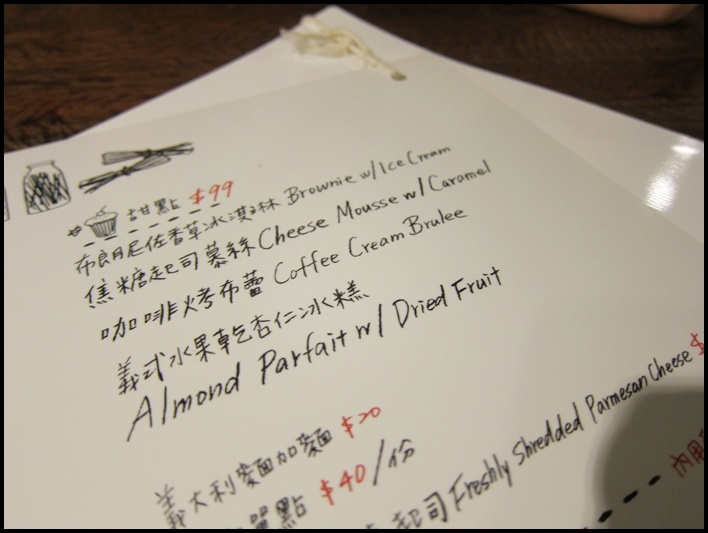 甜點 $99
布朗尼佐香草冰淇淋 Brownie w/ Ice Cream
焦糖起司慕絲 Cheese Mousse w/ Caramel
咖啡烤布蕾 Coffee Cream Brulee
義式水果乾杏仁冰糕
Almond Parfait w/ Dried Fruit
義大利麵加麵 $20
單點 $40/份
起司 Freshly Shredded Parmesan Cheese $
內用